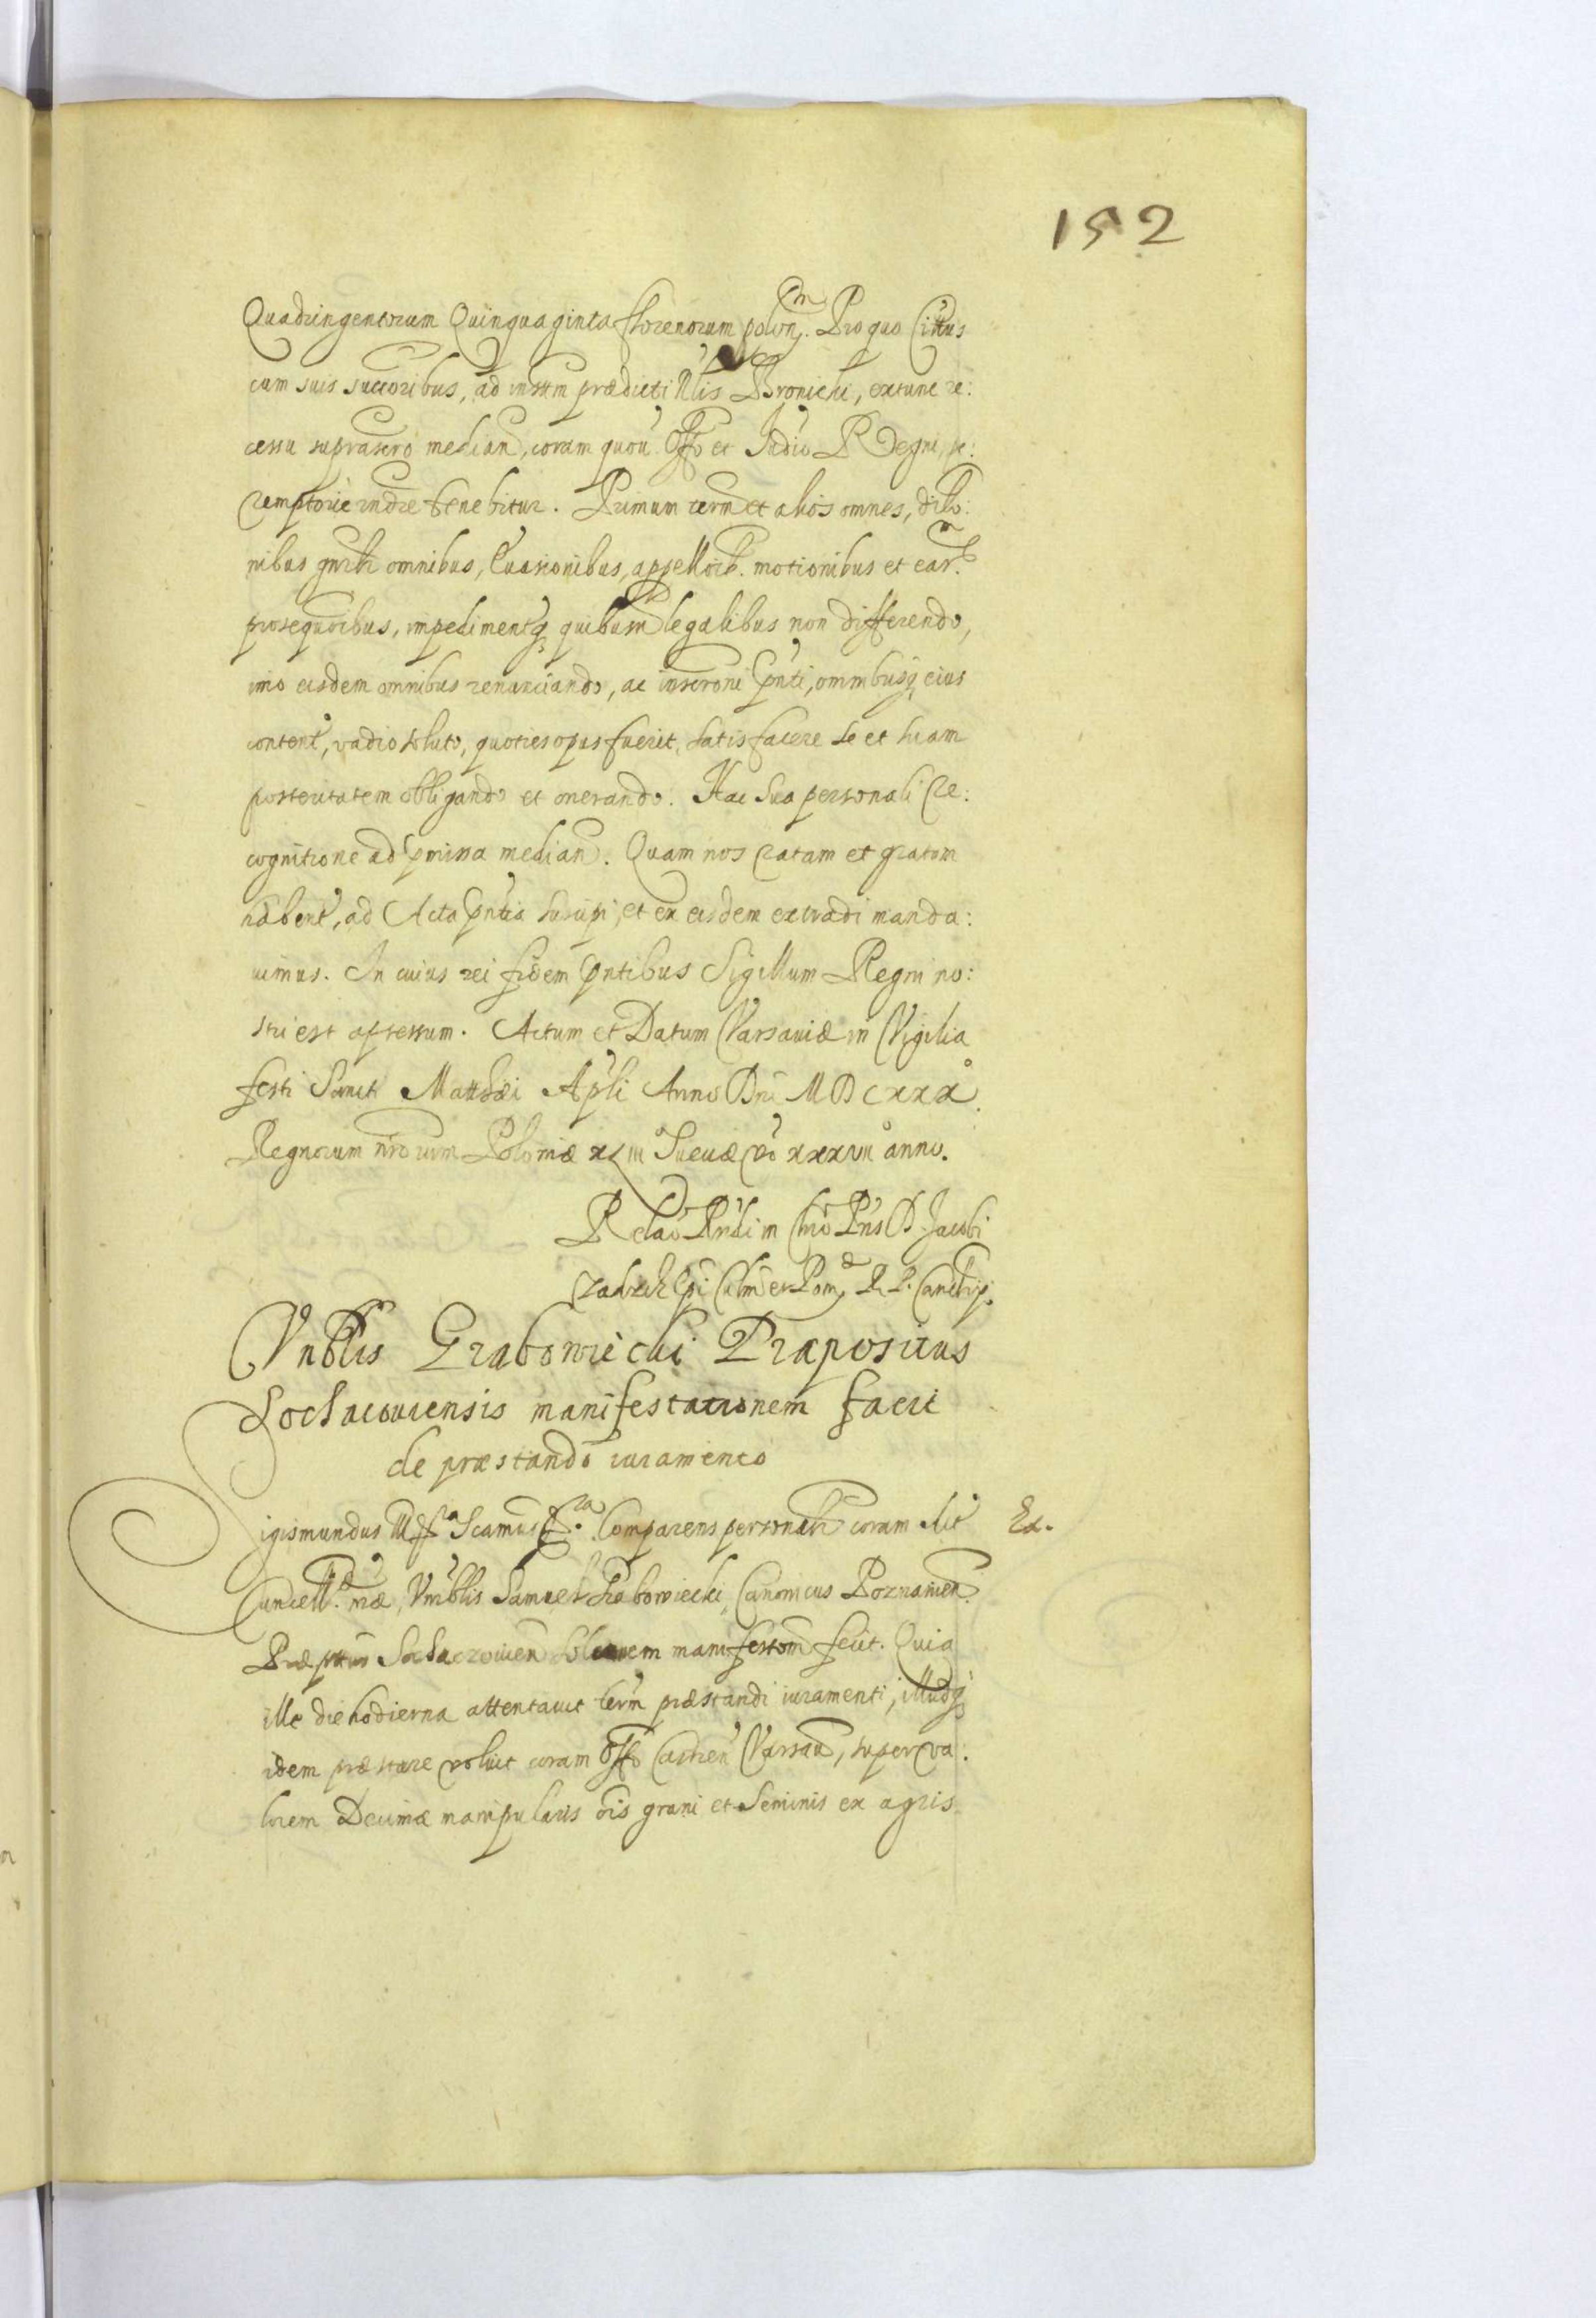 152
Quadringentorum Quinquaginta florenorum polon. Pro quo Cittus
cum suis succoribus, ad instm prædicti Nlis Bronicki, extunc re:
cessu suprascro median, coram quou Offo et Judio Regni, pe:
remptorie rndre tenebitur. Primum term et alios omnes, dilo:
nibus gnrlr omnibus, Euasionibus, appellóib. motionibus et ear.
prosequóibus, impedimentq quibusu legalibus non differendo,
imo eisdem omnibus renunciando, ac inscroni pnti, omnibusq eius
content, vadio soluto, quoties opus fuerit, satisfacere se et suam
posteritatem obligando et onerando. Hac sua personali Re:
cognitione ad pmissa median. Quam nos ratam et gratam
habent, ad Acta pntia suscipi, et ex eisdem extradi manda:
uimus. In cuius rei fidem pntibus Sigillum Regni no:
stri est appressum. Actum et Datum Varsauiæ in Vigilia
festi Sancti Matthæi Apli Anno Dni MDCXXX
Regnorum nrorum Poloniæ XLIII Sueuæ vo xxxvii anno.
Relaó Rndi in Chro Pris D. Jacobi
Zadzik Epi Culm et Pom R. P. Cancrij.
Vnblis Grabowiecki Præpositus
Sochacouiensis manifestationem facit
de præstando iuramento
Sigismundus III Comparens personalr coram Act Ex.
Cancell. nræ, Vnrblis Samuel Grabowiecki, Canonicus Poznanien
Præpttus Sochaczouien solennem manifestom fecit. Quia
ille die hodierna attentauit term præstandi iuramenti, illudq
idem præstare voluit coram Offo Castren Varsau, super va:
lorem Decimæ manipularis óis grani et Seminis ex agris